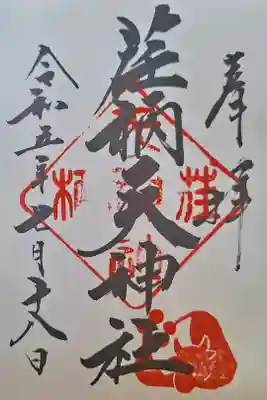 奉拝
荏柄天神社
令和五年七月十八日
荏
柄